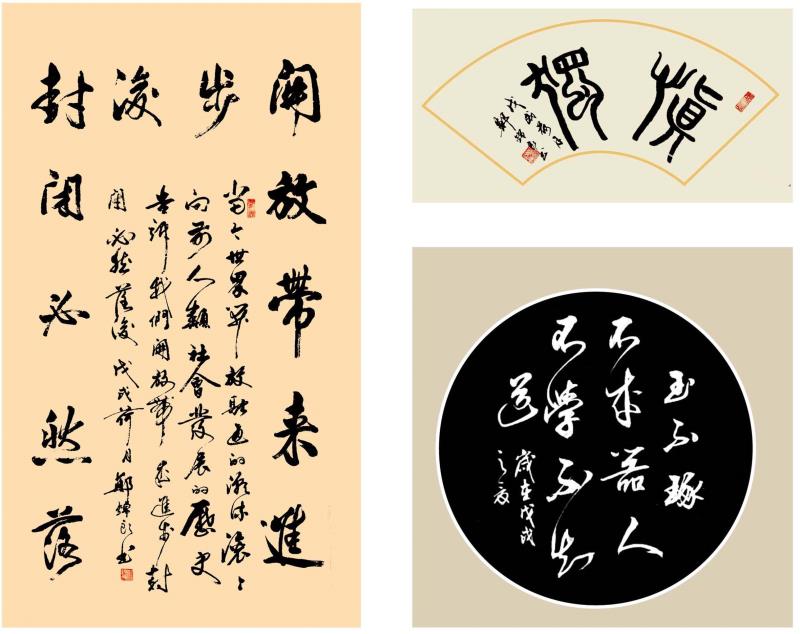 開放帶来進
步
封閉必然落
後
当今世界開放融通的潮流滾滾
向前人類社會發展的歷史
告訴我們開放帶来進步封
閉必然落後 戊戌荷月鄭書
慎獨
戊戌荷月
鄭書
玉不琢
不成器人
不學不知
道
歲在戊戌
之夏